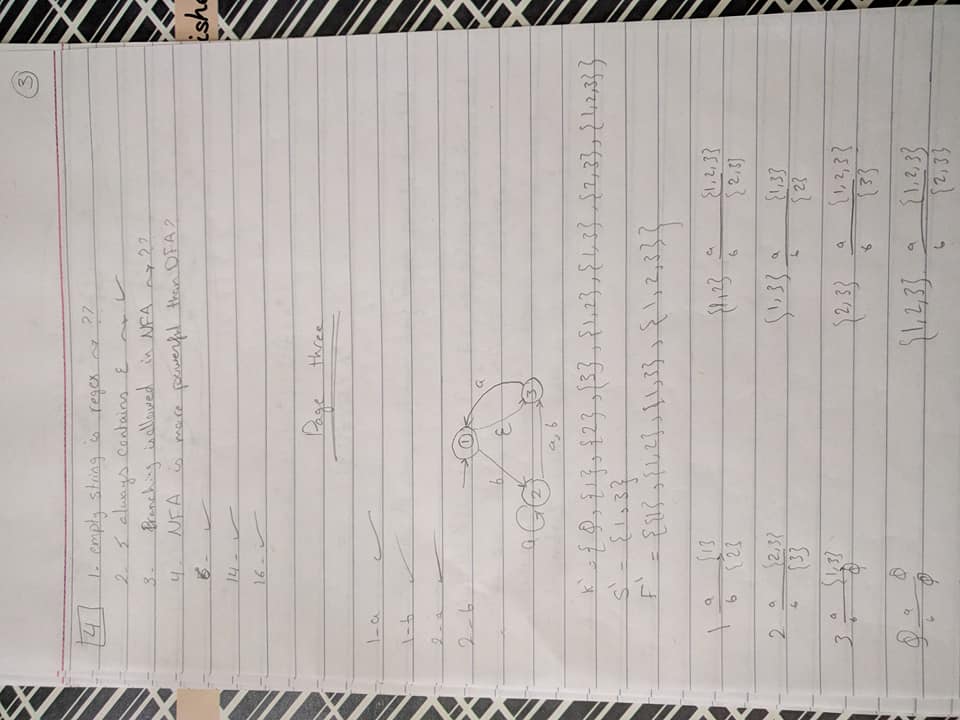 3
4 1. empty string is regex ~> ??
2. Σ always contains ε ~> ✓
3. Branching is allowed in NFA ~> ??
4. NFA is more powerful than DFA?
5- ✓
14- ✓
16- ✓
ish
Page three
1-a ✓
1-b ✓
2-a ✓
2-b
1
b ε a
a 2 3
a, b
K' = {Φ, {1}, {2}, {3}, {1,2}, {1,3}, {2,3}, {1,2,3}}
S' = {1,3}
F' = {{1}, {1,2}, {1,3}, {1,2,3}}
1 a {1}
b {2}
2 a {2,3}
b {3}
3 a {1,3}
b Φ
Φ a Φ
b Φ
{1,2} a {1,2,3}
b {2,3}
{1,3} a {1,3}
b {2}
{2,3} a {1,2,3}
b {3}
{1,2,3} a {1,2,3}
b {2,3}